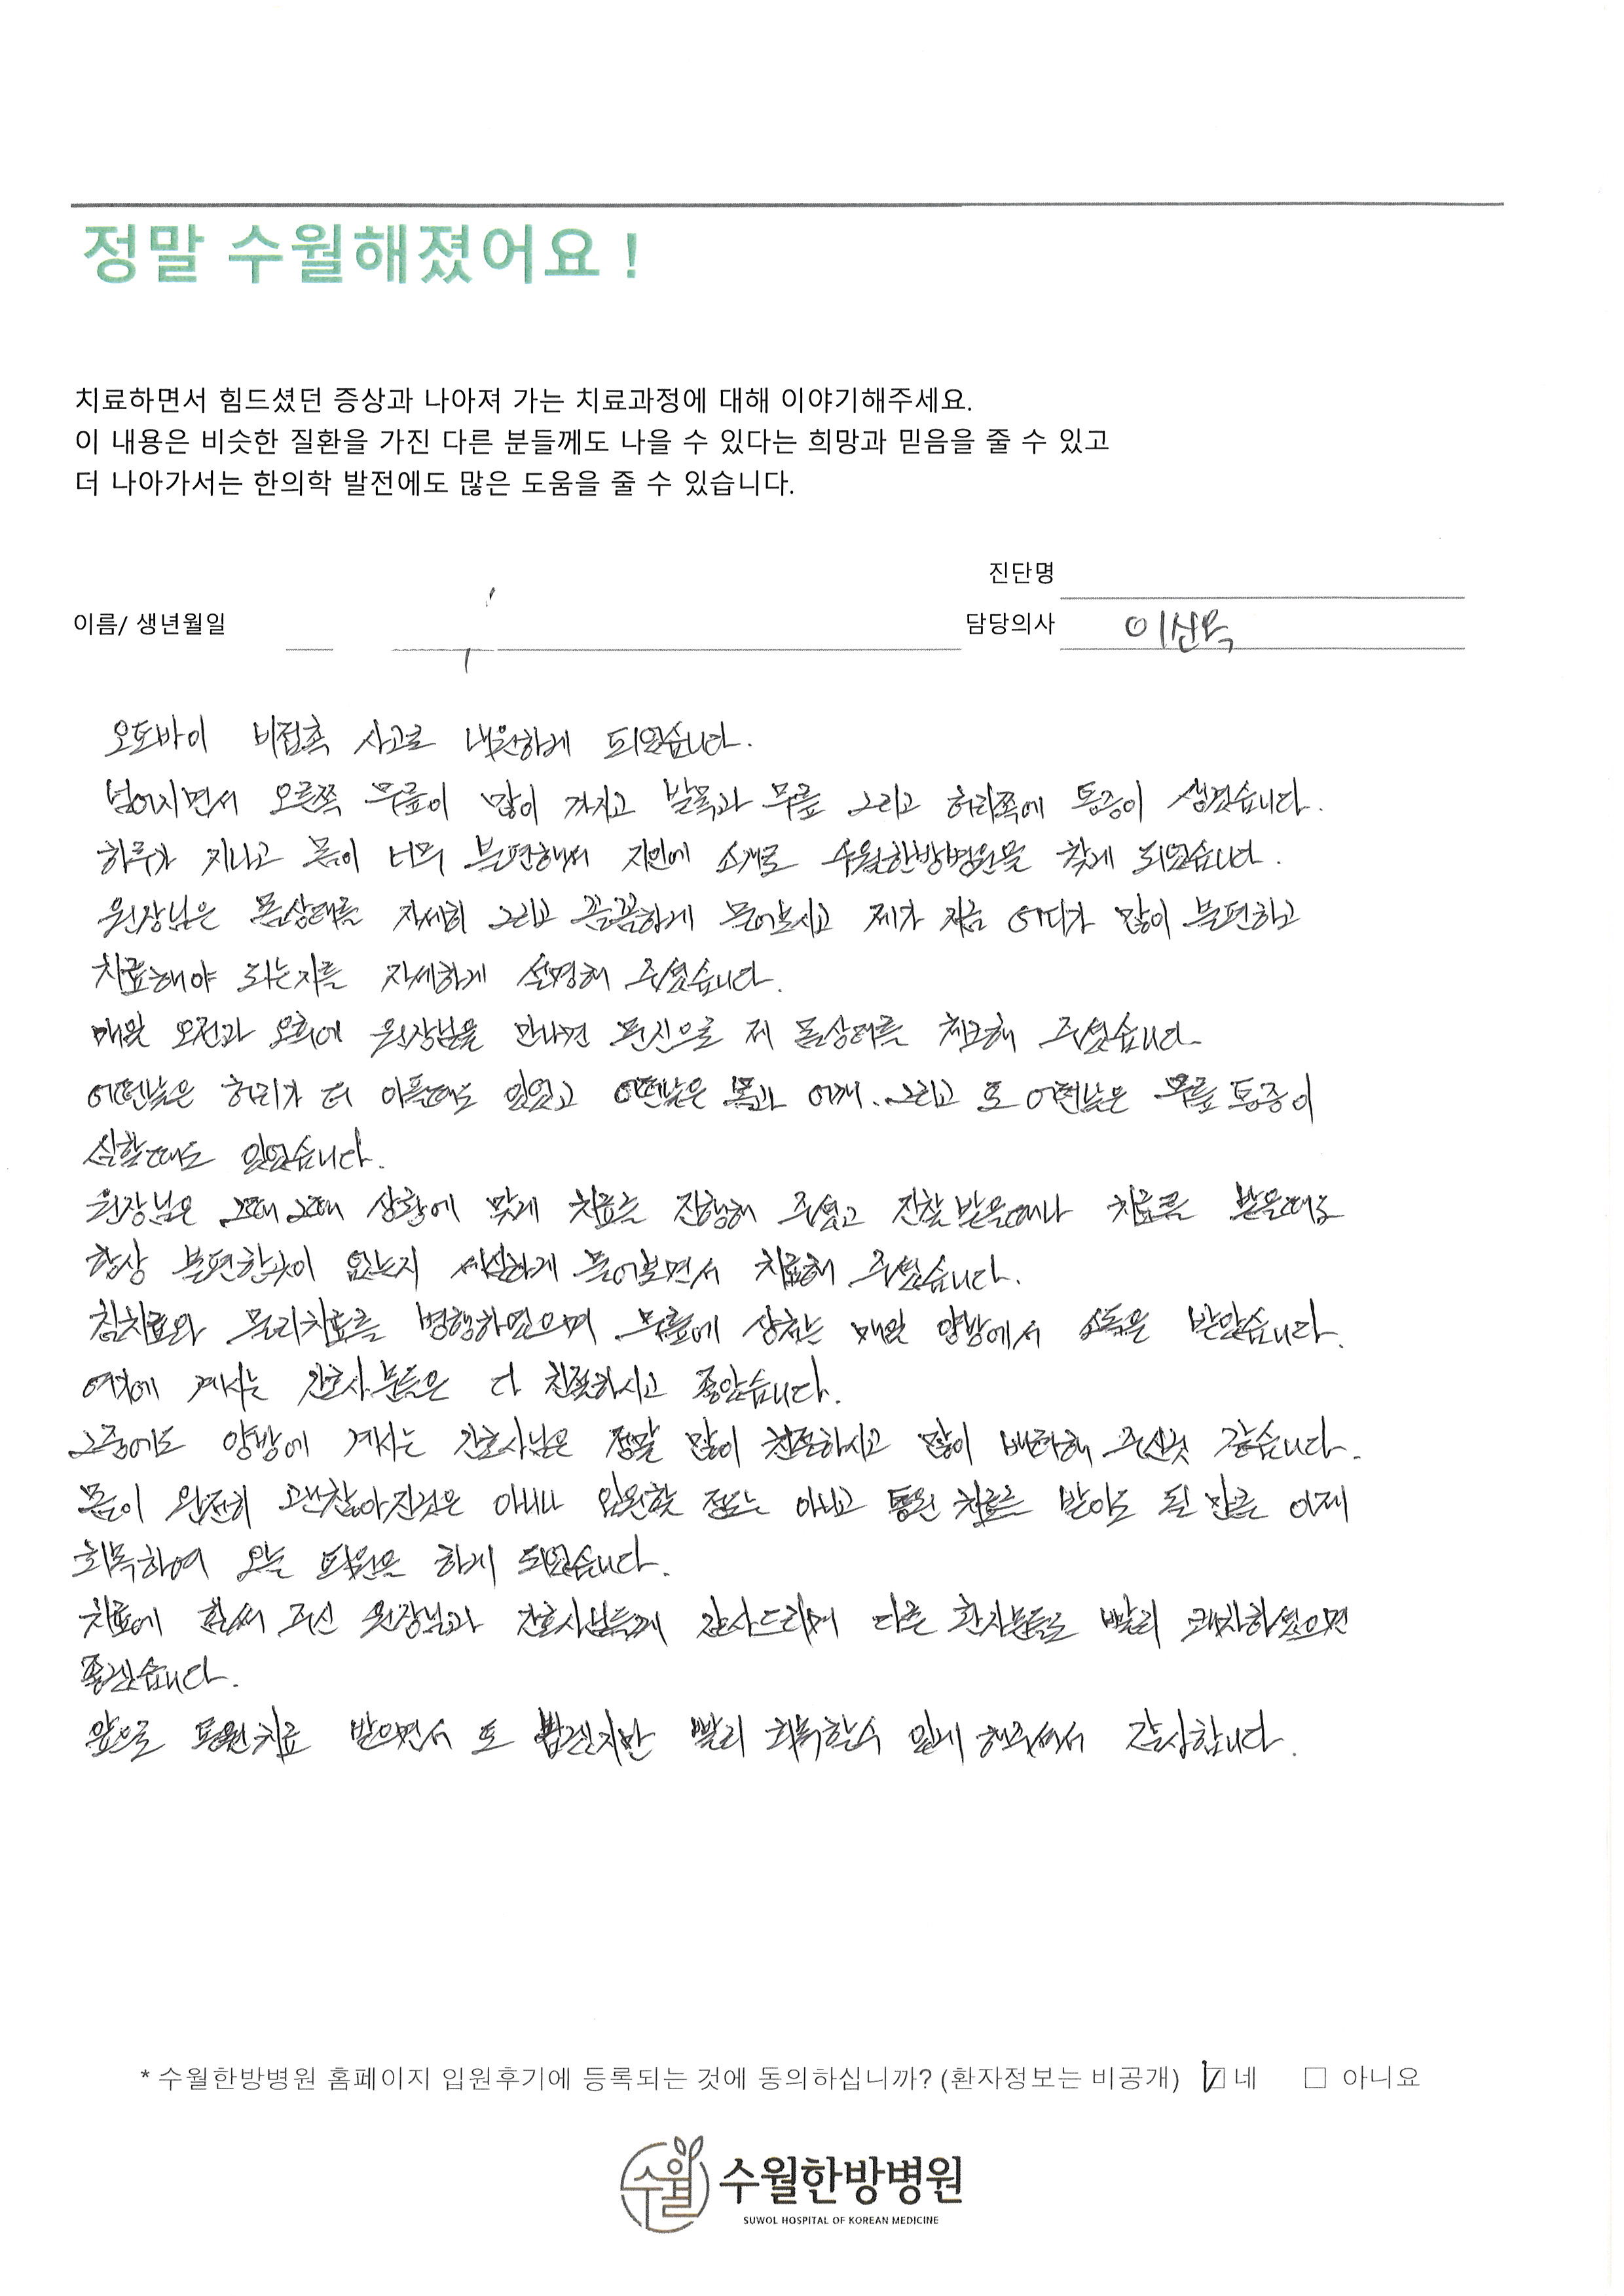 정말 수월해졌어요 !
치료하면서 힘드셨던 증상과 나아져 가는 치료과정에 대해 이야기해주세요.
이 내용은 비슷한 질환을 가진 다른 분들께도 나을 수 있다는 희망과 믿음을 줄 수 있고
더 나아가서는 한의학 발전에도 많은 도움을 줄 수 있습니다.
진단명
이름/ 생년월일 담당의사 이신욱
오토바이 비접촉 사고로 내원하게 되었습니다.
넘어지면서 오른쪽 무릎이 많이 까지고 발목과 무릎 그리고 허리쪽에 통증이 생겼습니다.
하루가 지나고 몸이 너무 불편해서 지인에 소개로 수월한방병원을 찾게 되었습니다.
원장님은 몸상태를 자세히 그리고 꼼꼼하게 물어보시고 제가 지금 어디가 많이 불편하고
치료해야 되는지를 자세하게 설명해 주셨습니다.
매일 오전과 오후에 원장님을 만나면 문진으로 제 몸상태를 체크해 주셨습니다
어떤날은 허리가 더 아플때도 있었고 어떤날은 목과 어깨. 그리고 또 어떤날은 무릎 통증이
심할때도 있었습니다.
원장님은 그때그때 상황에 맞게 치료를 진행해 주셨고 진찰받을때나 치료를 받을때도
항상 불편한곳이 있는지 세심하게 물어보면서 치료해 주셨습니다.
침치료와 물리치료를 병행하였으며 무릎에 상처는 매일 양방에서 소독을 받았습니다.
여기에 계시는 간호사분들은 다 친절하시고 좋았습니다.
그중에도 양방에 계시는 간호사님은 정말 많이 친절하시고 많이 배려해 주신것 같습니다.
몸이 완전히 괜찮아진것은 아니나 입원할 정도는 아니고 통원 치료를 받아도 될 만큼 이제
회복하여 오늘 퇴원을 하게 되었습니다.
치료에 힘써 주신 원장님과 간호사님들께 감사드리며 다른 환자분들도 빨리 쾌차하셨으면
좋겠습니다.
앞으로 통원치료 받으면서 또 뵙겠지만 빨리 회복할수 있게 해주셔서 감사합니다.
* 수월한방병원 홈페이지 입원후기에 등록되는 것에 동의하십니까? (환자정보는 비공개) ☑ 네 □ 아니요
수월 수월한방병원
SUWOL HOSPITAL OF KOREAN MEDICINE